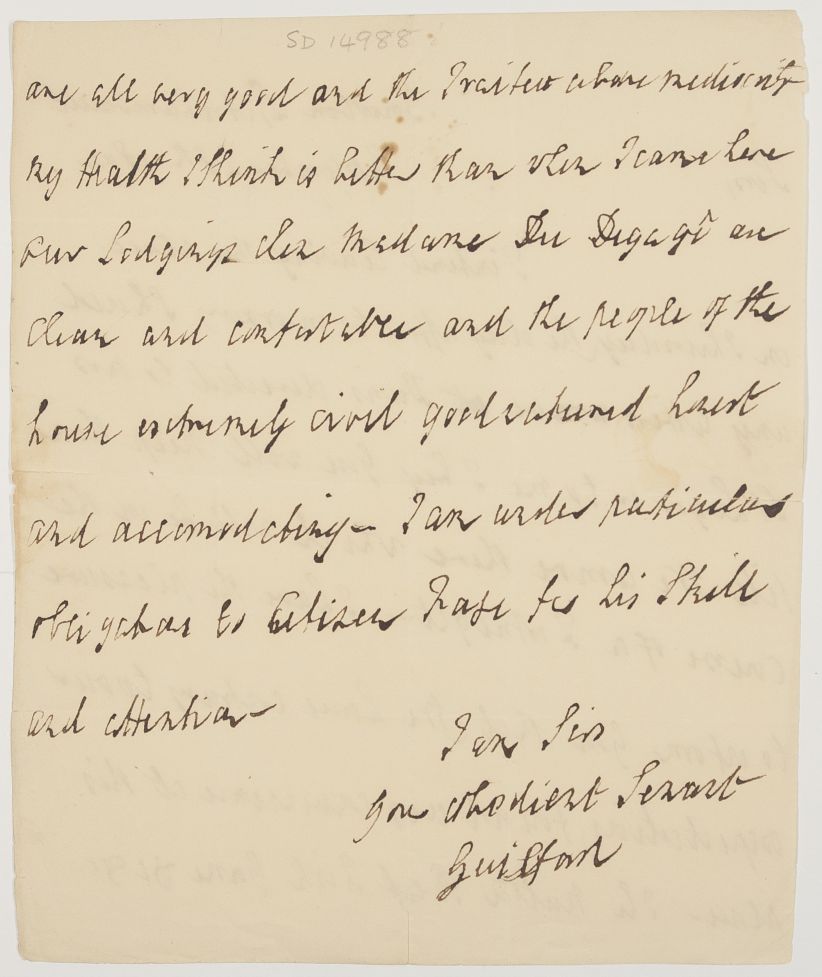 SD 14988
are all very good and the Traiteur above mediocrity
my Health I think is better than when I came here
our Lodgings chez Madame Du Degagé are
clean and comfortable and the people of the
house extremely civil goodnatured honest
and accomodating — I am under particular
obligations to Citizen for his Skill
and attention —
I am Sir
your obedient Servant
Guilford